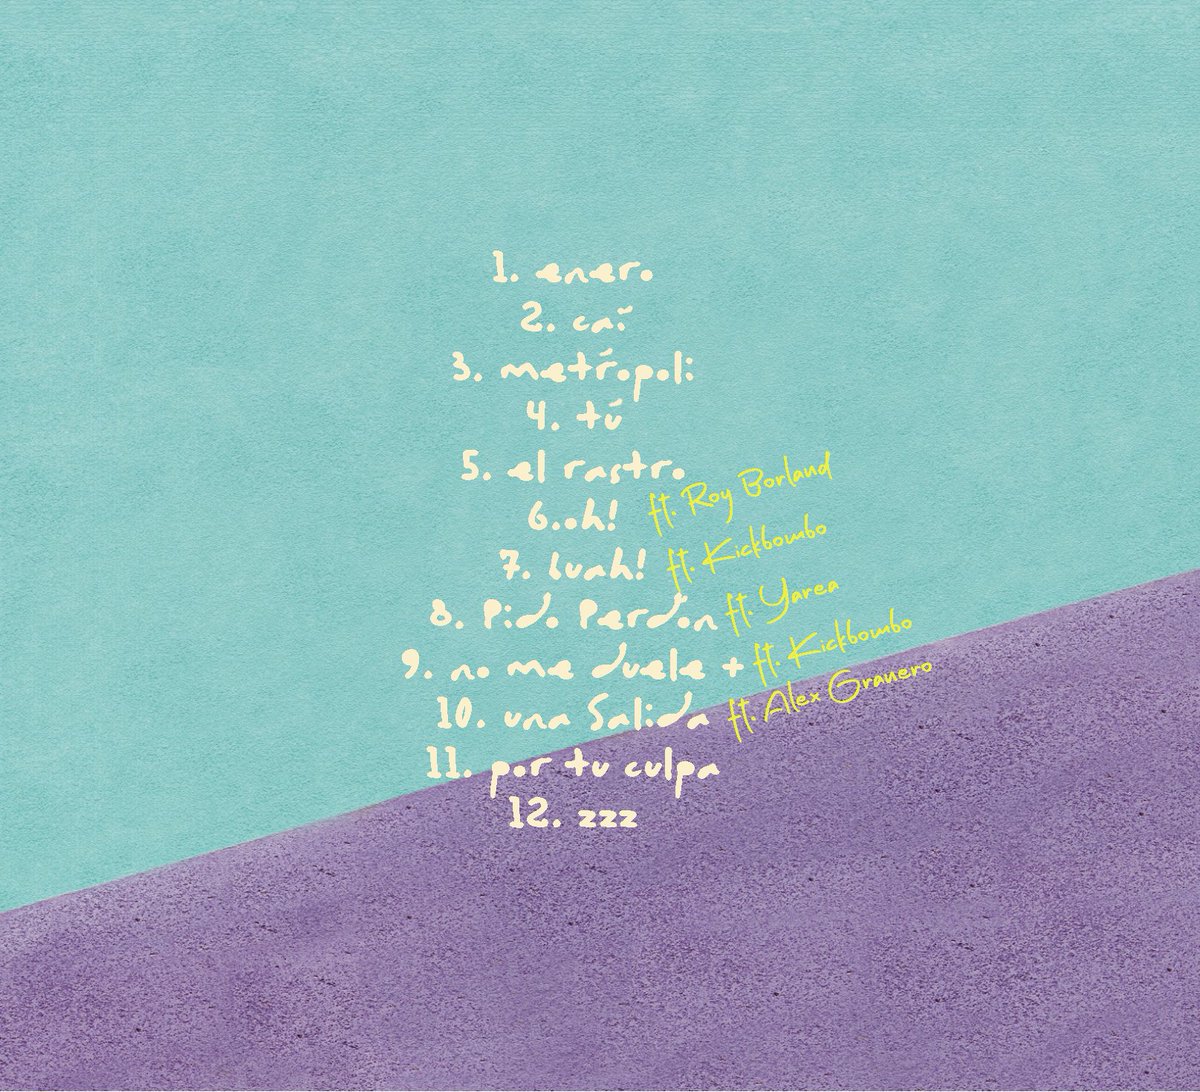 1. enero
2. caí
3. metrópoli
4. tú
5. el rastro
6. oh! ft. Roy Borland
7. buah! ft. Kickbombo
8. Pido Perdón ft. Yarea
9. no me duele + ft. Kickbombo
10. una Salida ft. Alex Granero
11. por tu culpa
12. zzz